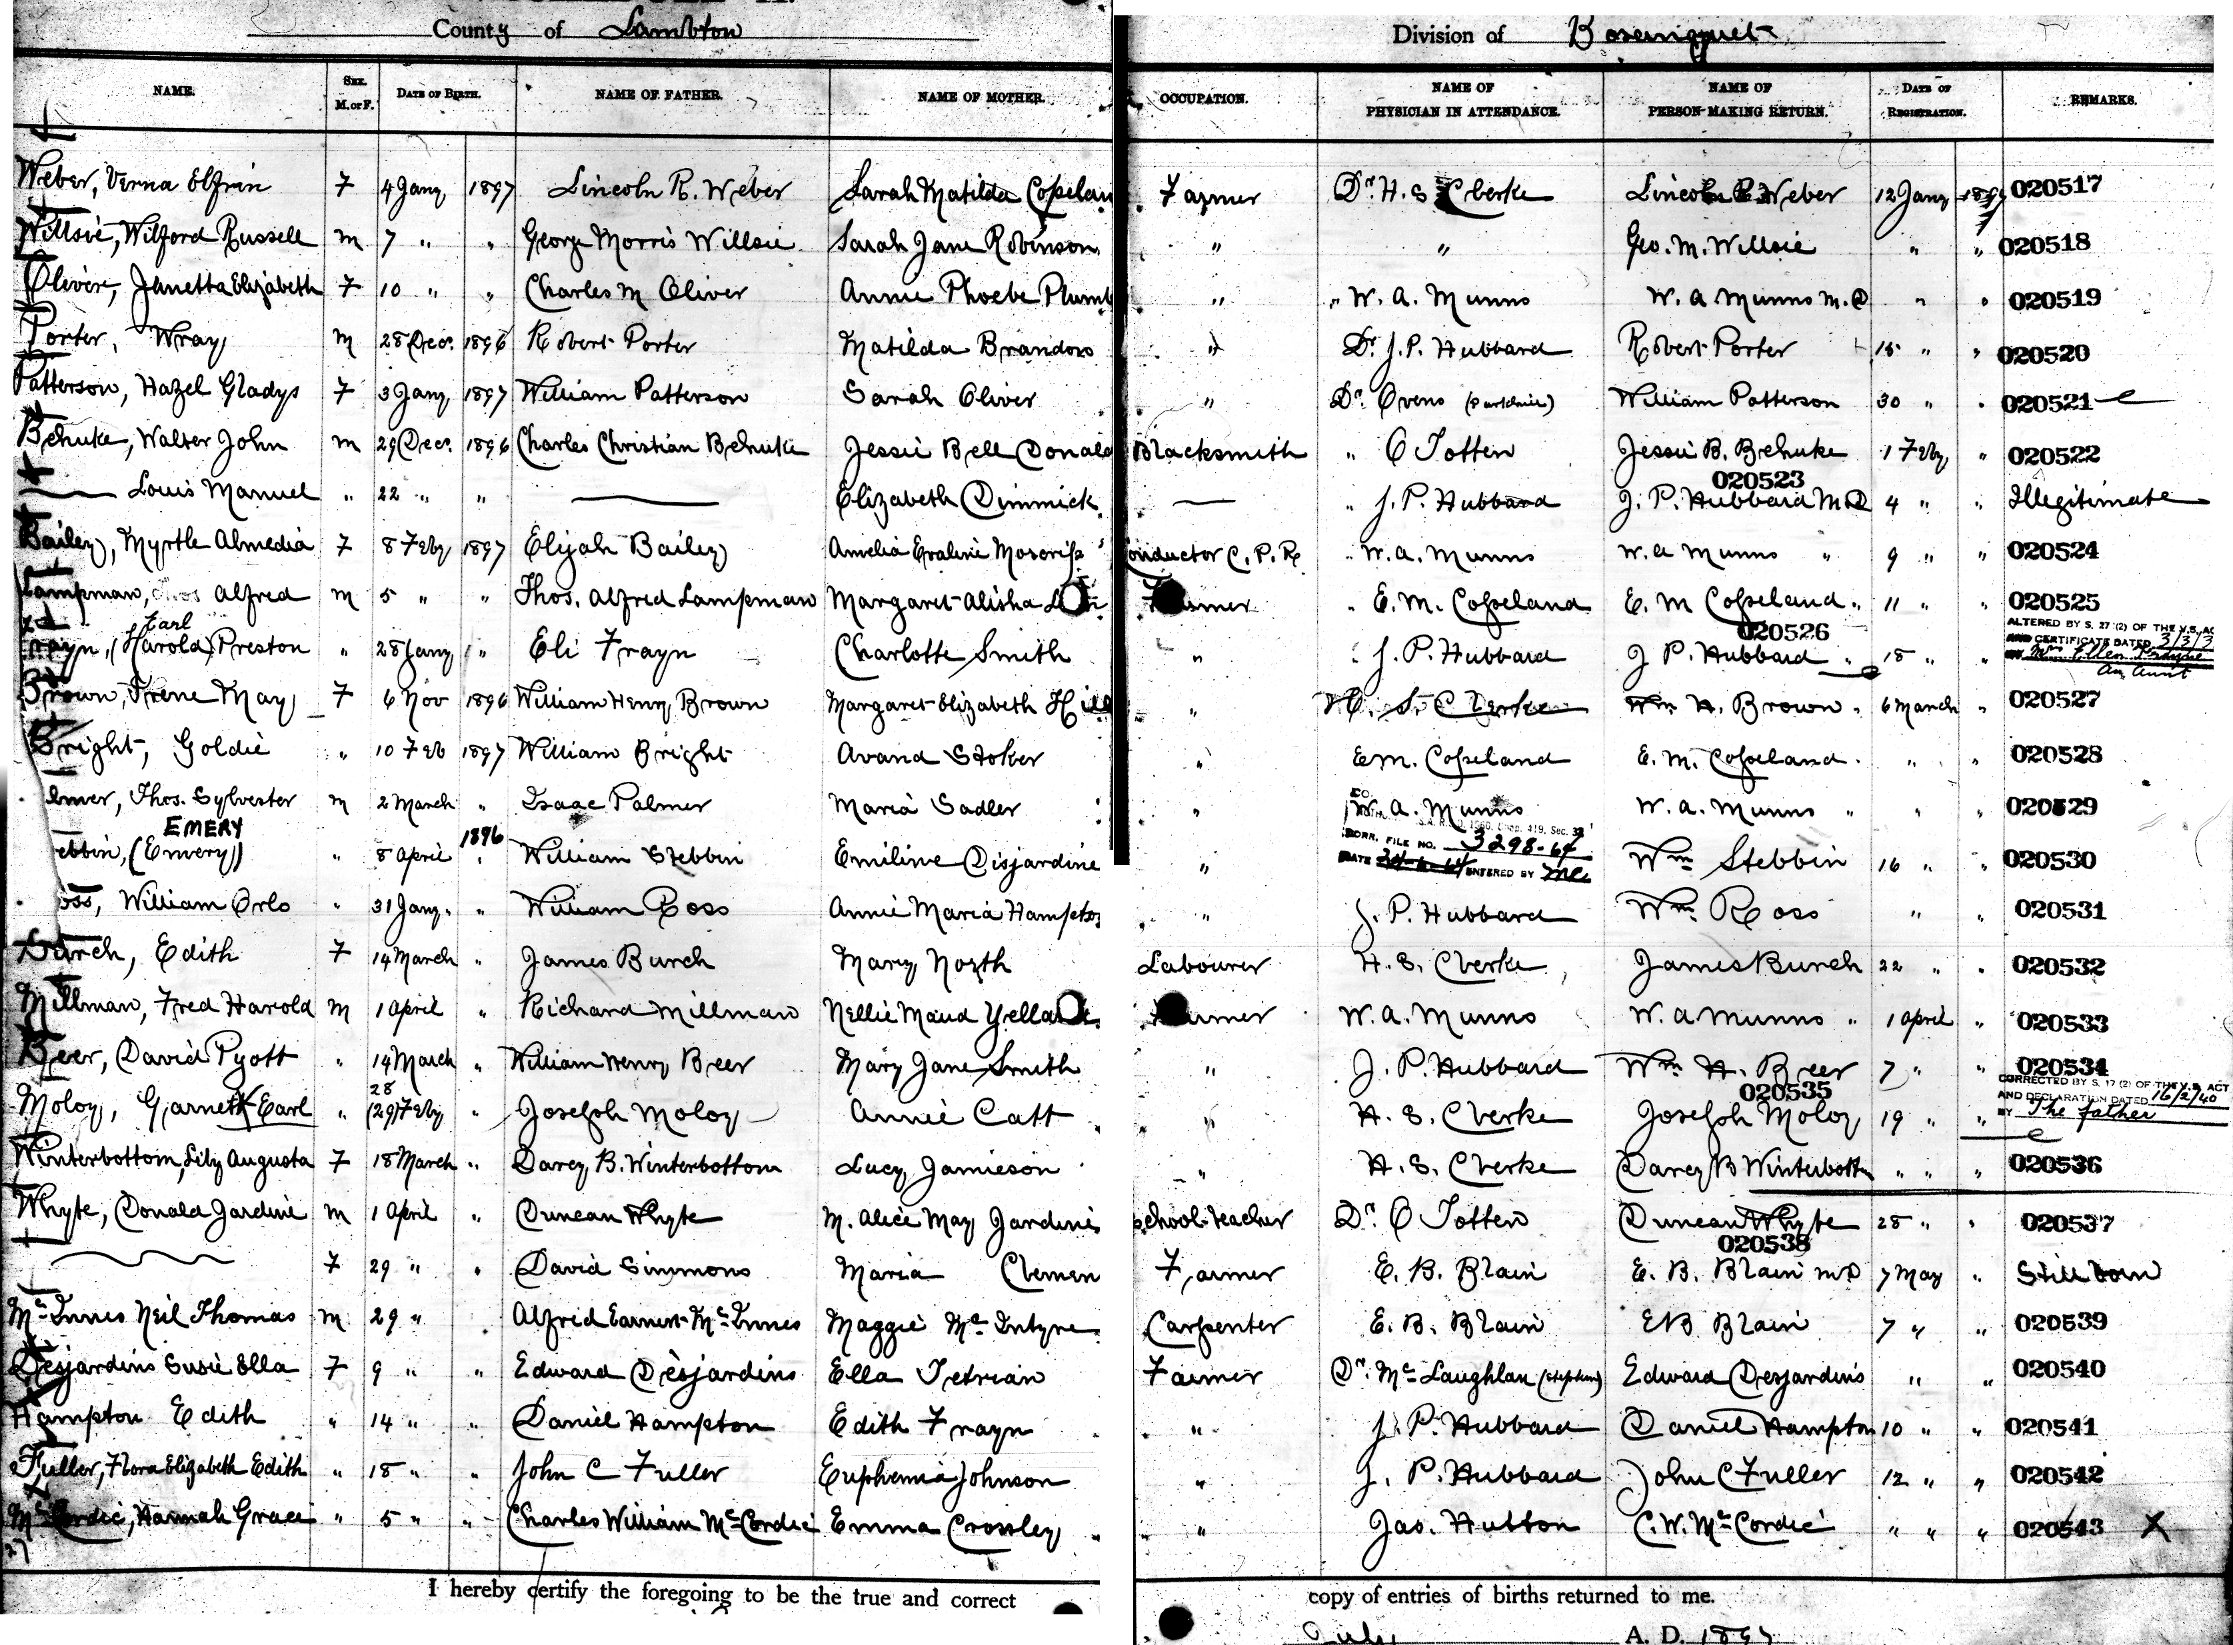 County of Lambton Division of Bosanquet
NAME. SEX. M. or F. DATE OF BIRTH. NAME OF FATHER. NAME OF MOTHER. OCCUPATION. NAME OF PHYSICIAN IN ATTENDANCE. NAME OF PERSON MAKING RETURN. DATE OF REGISTRATION. REMARKS.
Weber, Verna Elfrin F 4 Jany 1897 Lincoln R. Weber Sarah Matilda Copelan Farmer Dr. H. S. Clerke Lincoln R Weber 12 Jany 1897 020517
Willsie, Wilford Russell M 7 " " George Morris Willsie Sarah Jane Robinson " " Geo. M. Willsie " " 020518
Oliver, Janetta Elizabeth F 10 " " Charles M Oliver Annie Phoebe Plumb " " W. A. Munns W. A Munns M.D " " 020519
Porter, Wray M 28 Dec. 1896 Robert Porter Matilda Brandon " Dr J. P. Hubbard Robert Porter 15 " " 020520
Patterson, Hazel Gladys F 3 Jany 1897 William Patterson Sarah Oliver " Dr. Ovens (Parkhill) William Patterson 30 " " 020521
Behuke, Walter John M 29 Dec. 1896 Charles Christian Behuke Jessie Bell Donald Blacksmith " O Totten Jessie B. Behuke 1 Feby " 020522
020523
Louis Manuel " 22 " " Elizabeth Dimmick " J. P. Hubbard J. P. Hubbard M.D 4 " " Illegitimate
Bailey, Myrtle Almedia F 8 Feby 1897 Elijah Bailey Amelia Evaline Conductor C. P. R. " W. A. Munns W. A Munns " 9 " " 020524
Lampman, Thos Alfred M 5 " " Thos. Alfred Lampman Margaret Alisha Farmer " E. M. Copeland E. M Copeland " 11 " " 020525
Earl 020526 ALTERED BY S. 27 (2) OF THE V.S. AC
Frayn, (Harold) Preston " 28 Jany " Eli Frayn Charlotte Smith " " J. P. Hubbard J P. Hubbard " 18 " " AND CERTIFICATE DATED 3/3/3
BY Mrs Ellen Frayne
An Aunt
Brown, Irene May F 6 Nov 1896 William Henry Brown Margaret Elizabeth Hill " H. S. Clerke Wm H. Brown " 6 March " 020527
Bright, Goldie " 10 Feb 1897 William Bright Avand Stoker " E M. Copeland E. M. Copeland " " " 020528
lmer, Thos. Sylvester M 2 March " Isaac Palmer Maria Sadler " W. A. Munns W. A. Munns " " " 020529
EMERY 1896 CORR. FILE NO. 3298-64
ebbin, (Emery) " 8 April " William Stebbin Emiline Disjardine " DATE ENTERED BY Wm Stebbin 16 " " 020530
oss, William Orlo " 31 Jany. " William Ross Annie Maria Hampton " J. P. Hubbard Wm. Ross " " 020531
Burch, Edith F 14 March " James Burch Mary North Labourer H. S. Clerke James Burch 22 " " 020532
Millman, Fred Harold M 1 April " Richard Millman Nellie Maud Farmer W. A. Munns W. A Munns " 1 April " 020533
Beer, David Pyott " 14 March " William Henry Beer Mary Jane Smith " J. P. Hubbard Wm H. Beer 7 " " 020534
28 020535 CORRECTED BY S. 17 (2) OF THE V.S. ACT
Moloy, Garnett Earl " (29) Feby " Joseph Moloy Annie Catt " H. S. Clerke Joseph Moloy 19 " " AND DECLARATION DATED 16/2/40
BY The father
Winterbottom, Lily Augusta F 18 March " Darcy B. Winterbottom Lucy Jamieson " H. S. Clerke Darcy B Winterbottm " " " 020536
Whyte, Donald Jardine M 1 April " Duncan Whyte M. Alice May Jardine School-teacher Dr. O Totten Duncan Whyte 28 " " 020537
020538
F 29 " " David Simmons Maria Clemen Farmer E. B. Blain E. B. Blain M.D 7 May " Still born
McInnes Neil Thomas M 29 " Alfred Earnest McInnes Maggie McIntyre Carpenter E. B. Blain E B Blain 7 " " 020539
Desjardins Susie Ella F 9 " " Edward Desjardins Ella Tetrian Farmer Dr. McLaughlan Edward Desjardins " " 020540
Hampton Edith " 14 " " Daniel Hampton Edith Frayn " J. P. Hubbard Daniel Hampton 10 " " 020541
Fuller, Flora Elizabeth Edith " 18 " " John C Fuller Euphemia Johnson " J. P. Hubbard John C Fuller 12 " " 020542
McCordic, Hannah Grace " 5 " " Charles William McCordic Emma Crossley " Jas. Hutton C. W. McCordic " " " 020543 X
27
I hereby certify the foregoing to be the true and correct copy of entries of births returned to me.
July A. D. 1897